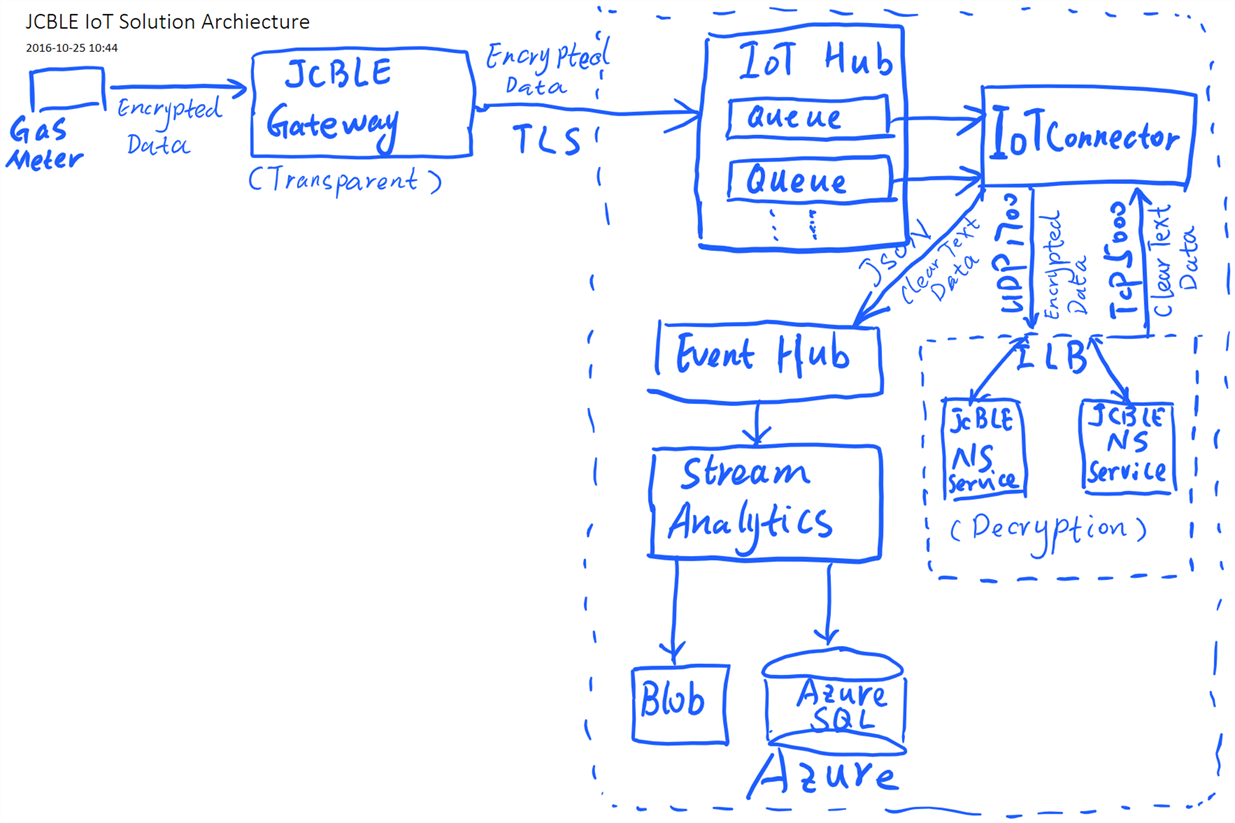 JCBLE IoT Solution Archiecture
2016-10-25 10:44
Gas
Meter
Encrypted
Data
JCBLE
Gateway
(Transparent)
Encrypted
Data
TLS
IoT Hub
Queue
Queue
IoT Connector
Json
Clear Text
Data
UDP1700
Encrypted
Data
TCP5000
Clear Text
Data
Event Hub
ILB
JCBLE
NS
Service
JCBLE
NS
Service
(Decryption)
Stream
Analytics
Blob
Azure
SQL
Azure